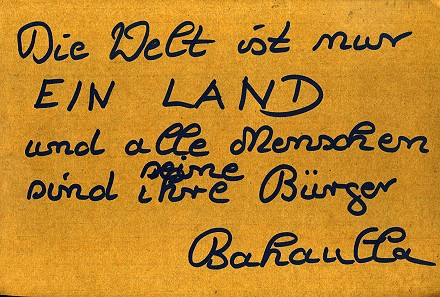 Die Welt ist nur
EIN LAND
und alle Menschen
seine
sind ihre Bürger
Bahaulla